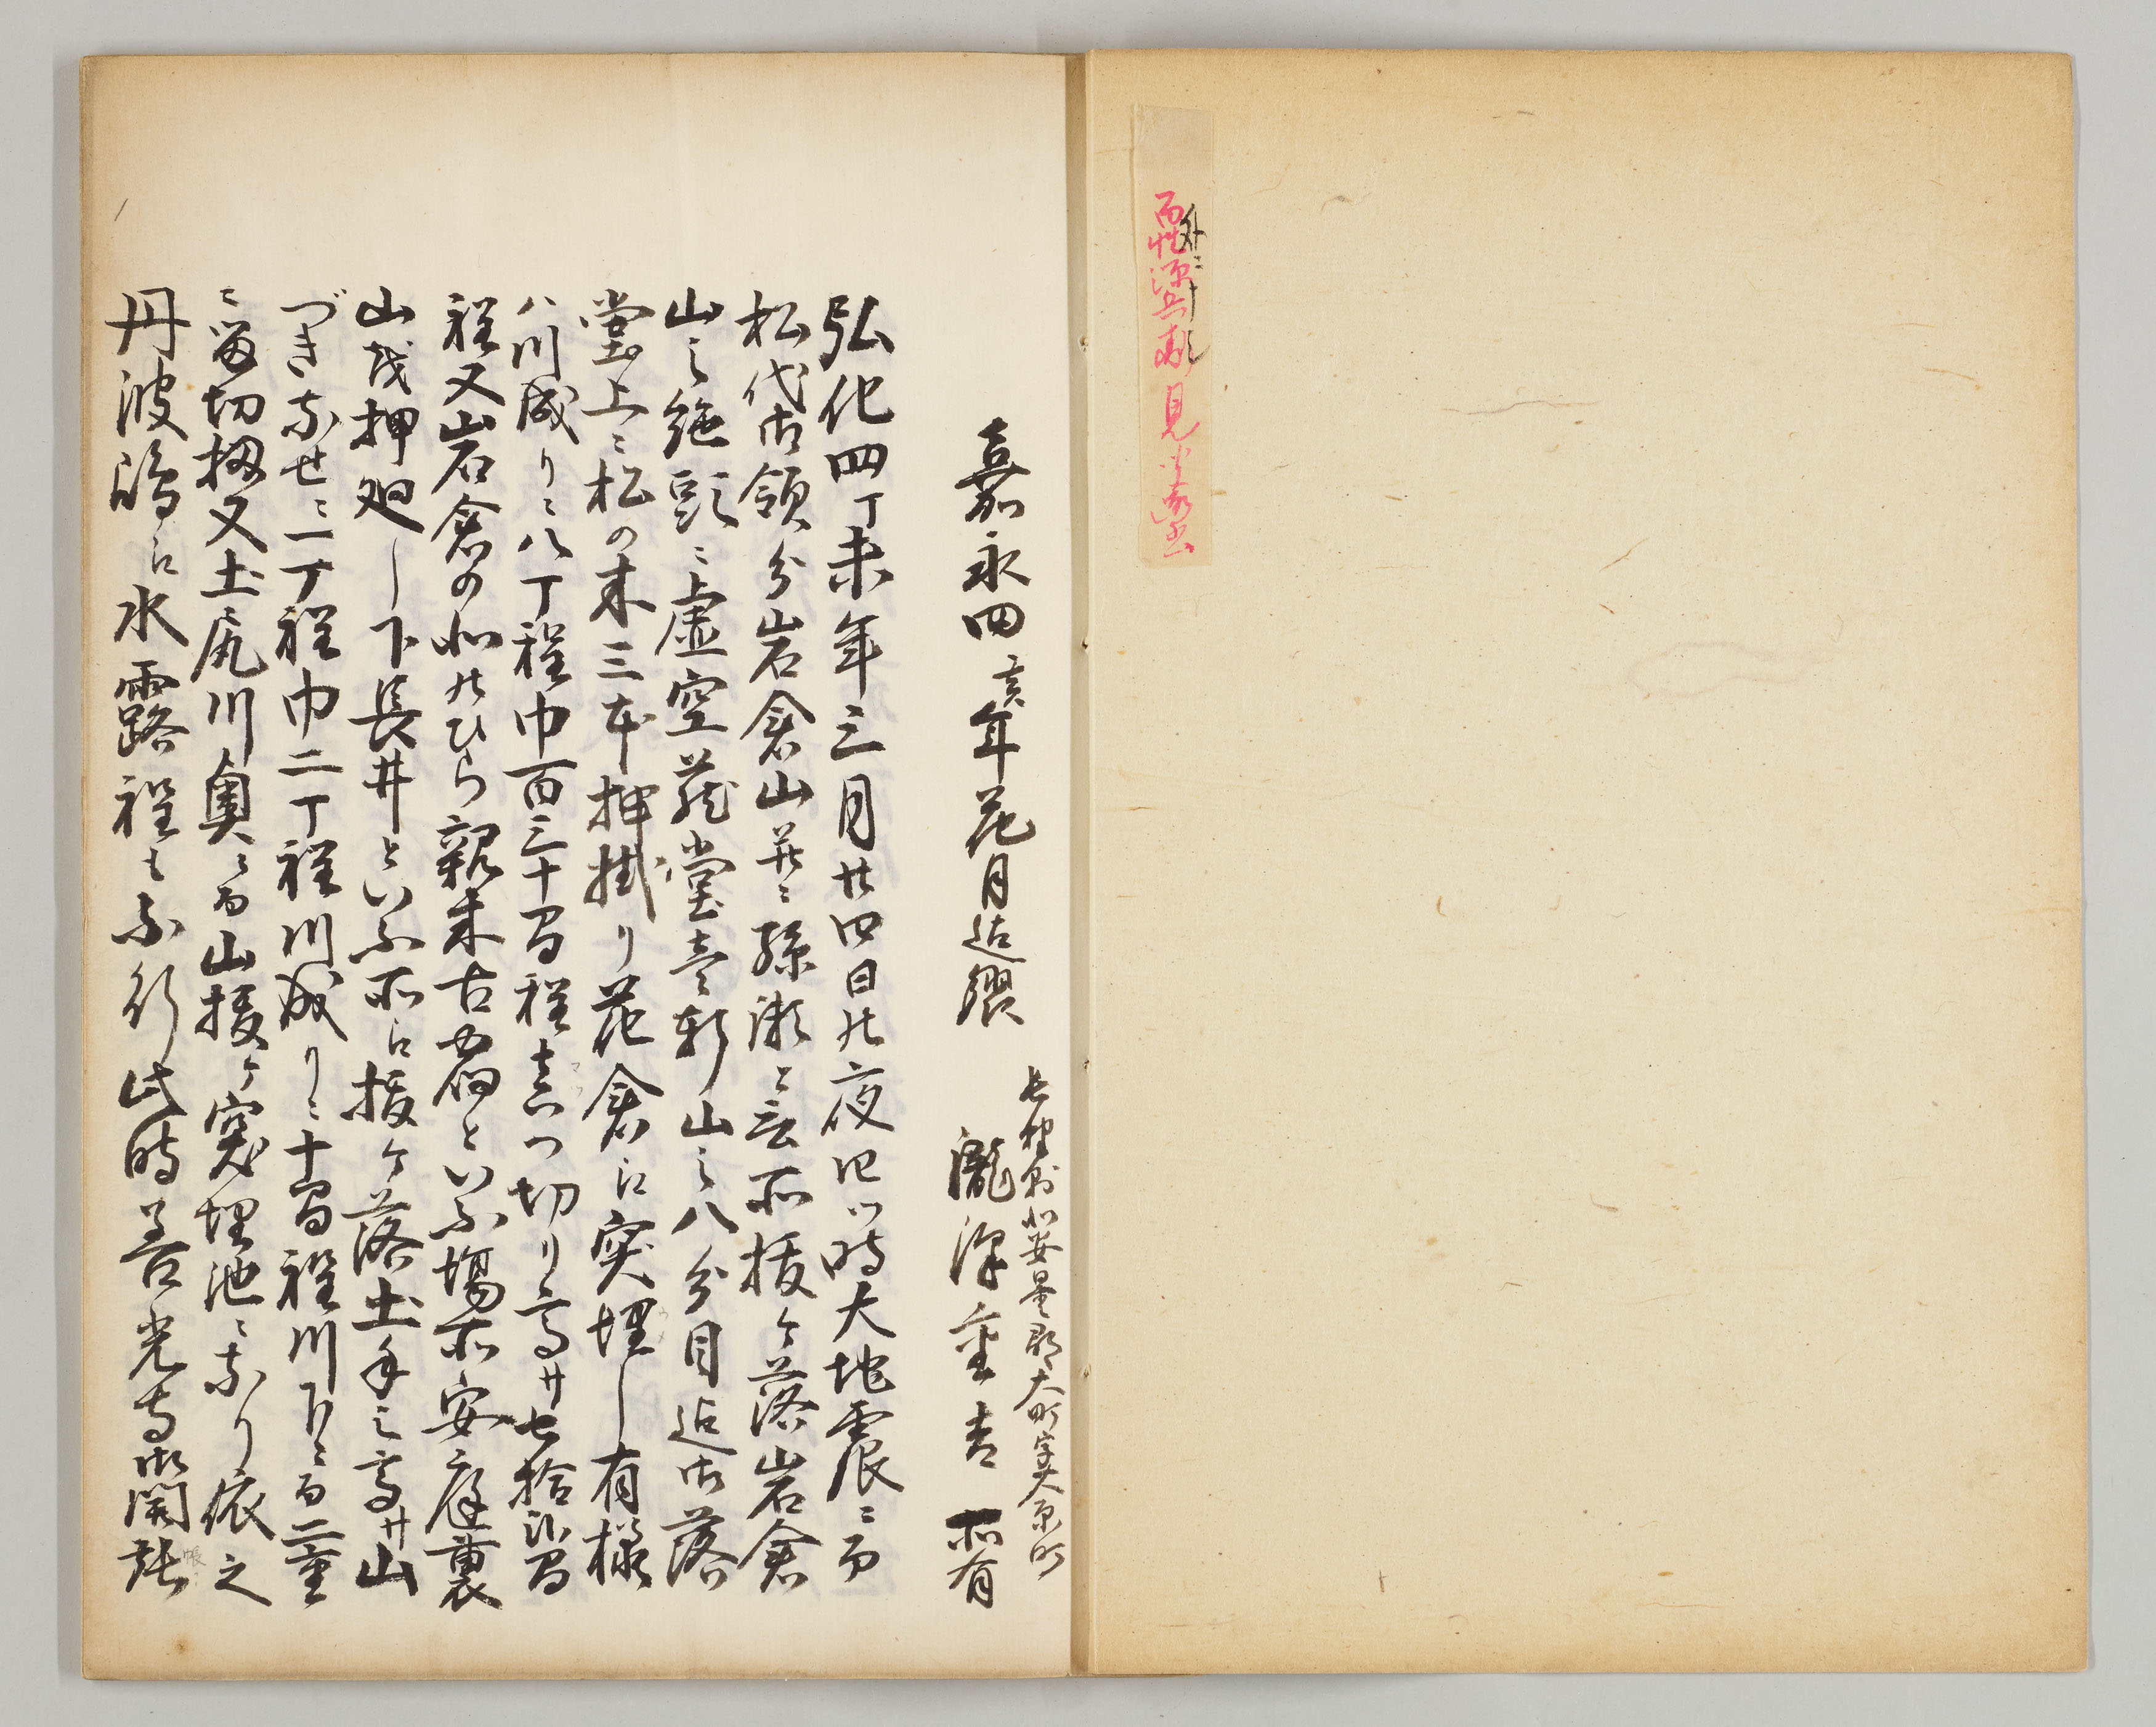 外ニ
百性源兵衛見
嘉永四亥年花月迠繰
長野縣北安曇郡大町字大原町
瀧澤重吉 所有
弘化四丁未年三月廿四日ノ夜四ツ時大地震ニ而
松代御領分岩倉山并ニ孫瀬と云所抜ケ落岩倉
山之絶頭ニ虚空蔵堂壱軒山之八分目迠御落
堂上ニ松の末三本押掛り花倉江突埋し有様
ハ川成りニ八丁程巾百三十間程真つ切り高サ七拾間
程又岩倉の北ノひら親来古宿といふ場所安庭裏
山茂押廻し下長井といふ所江抜ケ落土手之高サ山
づきならせニ一丁程巾二丁程川成りニ十間程川下ニ而二重
ニ留切扨又土尻川奥ニ而山抜ケ突埋池ニなり依之
丹波嶋江水露程も不行此時善光寺御開張
帳